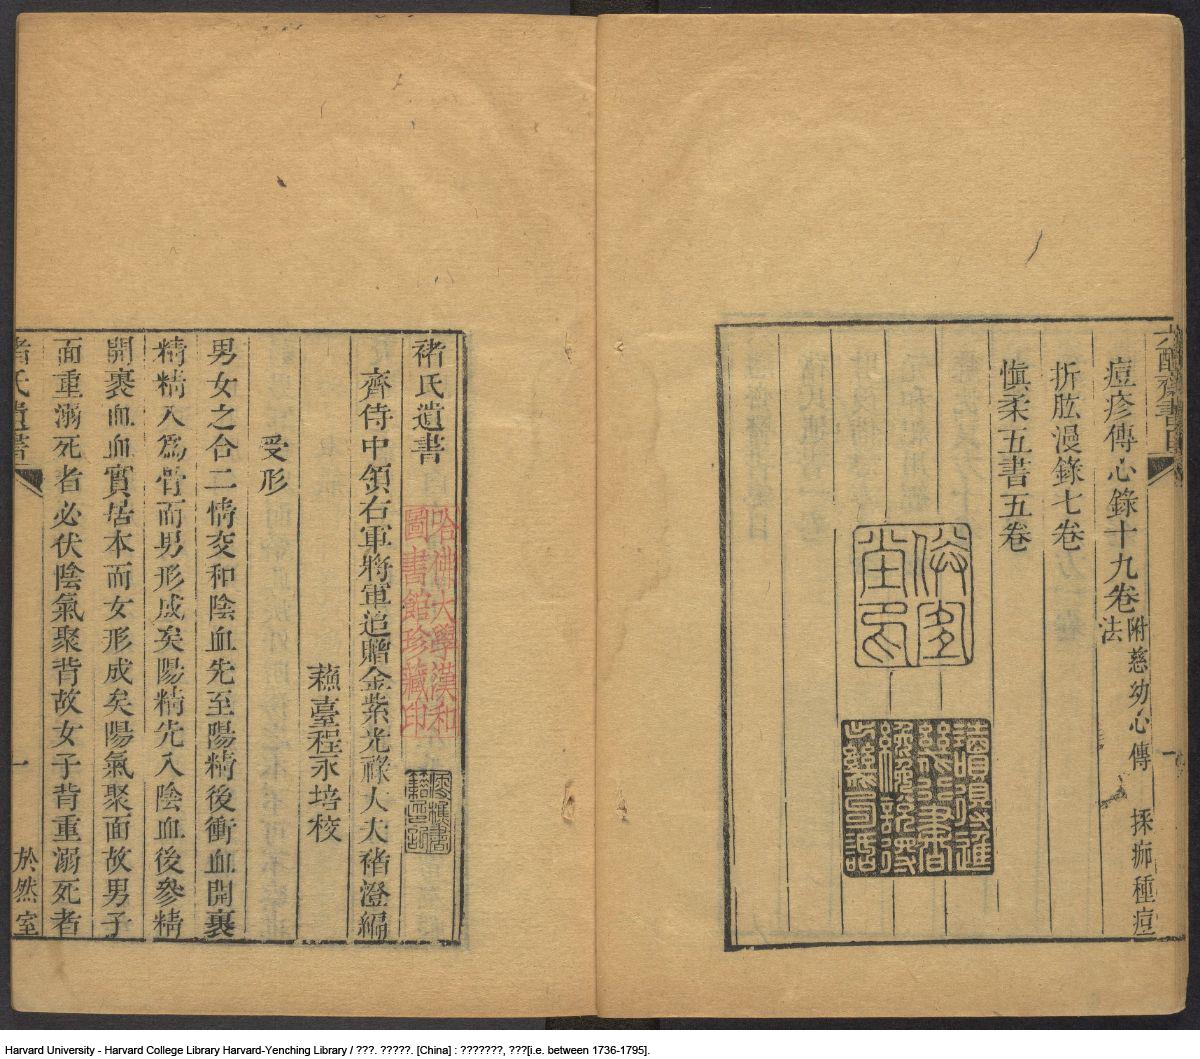 痘疹傳心錄十九卷 附慈幼心傳 採痂種痘法
折肱漫錄七卷
慎柔五書五卷
褚氏遺書
哈佛大學漢和
圖書館珍藏印
齊侍中領右軍將軍追贈金紫光祿大夫褚澄編
蘓臺程永培校
受形
男女之合二情交和陰血先至陽精後衝血開裹
精精入爲骨而男形成矣陽精先入陰血後參精
開裹血血實居本而女形成矣陽氣聚面故男子
面重溺死者必伏陰氣聚背故女子背重溺死者
褚氏遺書
一
於然室
Harvard University - Harvard College Library Harvard-Yenching Library / ???. ?????. [China] : ???????, ???[i.e. between 1736-1795].